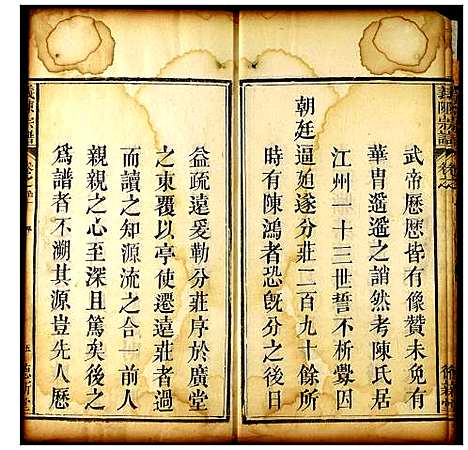 武帝歷歷皆有像贊未免有
華胄遥遥之誚然考陳氏居
江州一十三世誓不析爨因
朝廷逼廹遂分莊二百九十餘所
時有陳鴻者恐旣分之後日
益疏遠爰勒分莊序於廣堂
之東覆以亭使遷遠莊者過
而讀之知源流之合一前人
親親之心至深且篤矣後之
爲譜者不溯其源豈先人歷
義陳宗譜